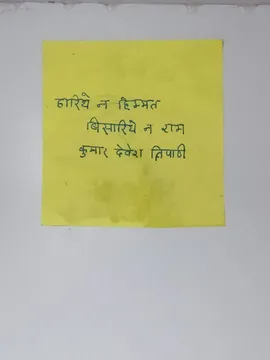 हारिये न हिम्मत
बिसारिये न राम
कुमार देवेश त्रिपाठी